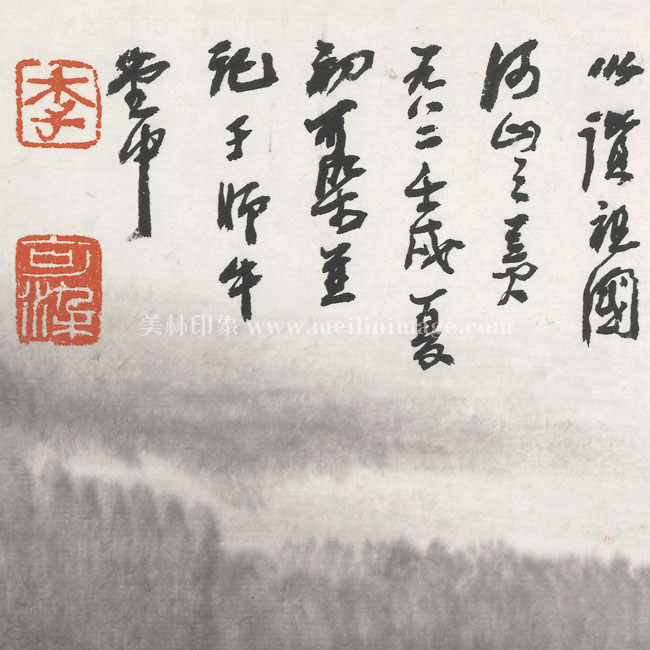 以讚祖國
河山之美
一九八二壬戌夏
初可染並
記于師牛
堂中
李
可染
美林印象 www.meilinimage.com